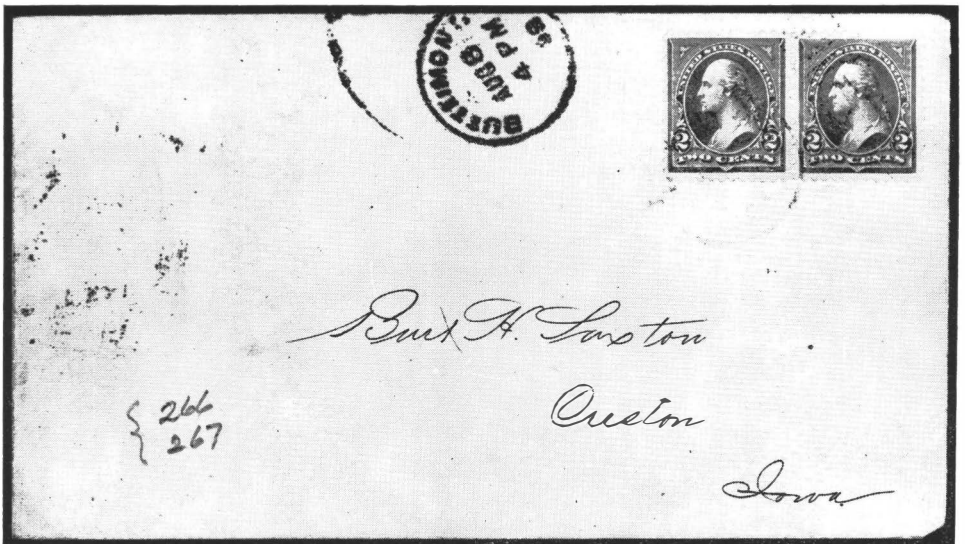 BUTTE, MONT.
AUG 8
4 PM
99
UNITED STATES POSTAGE
2 2
TWO CENTS
UNITED STATES POSTAGE
2 2
TWO CENTS
Burt H. Saxton
Creston
Iowa
266
267